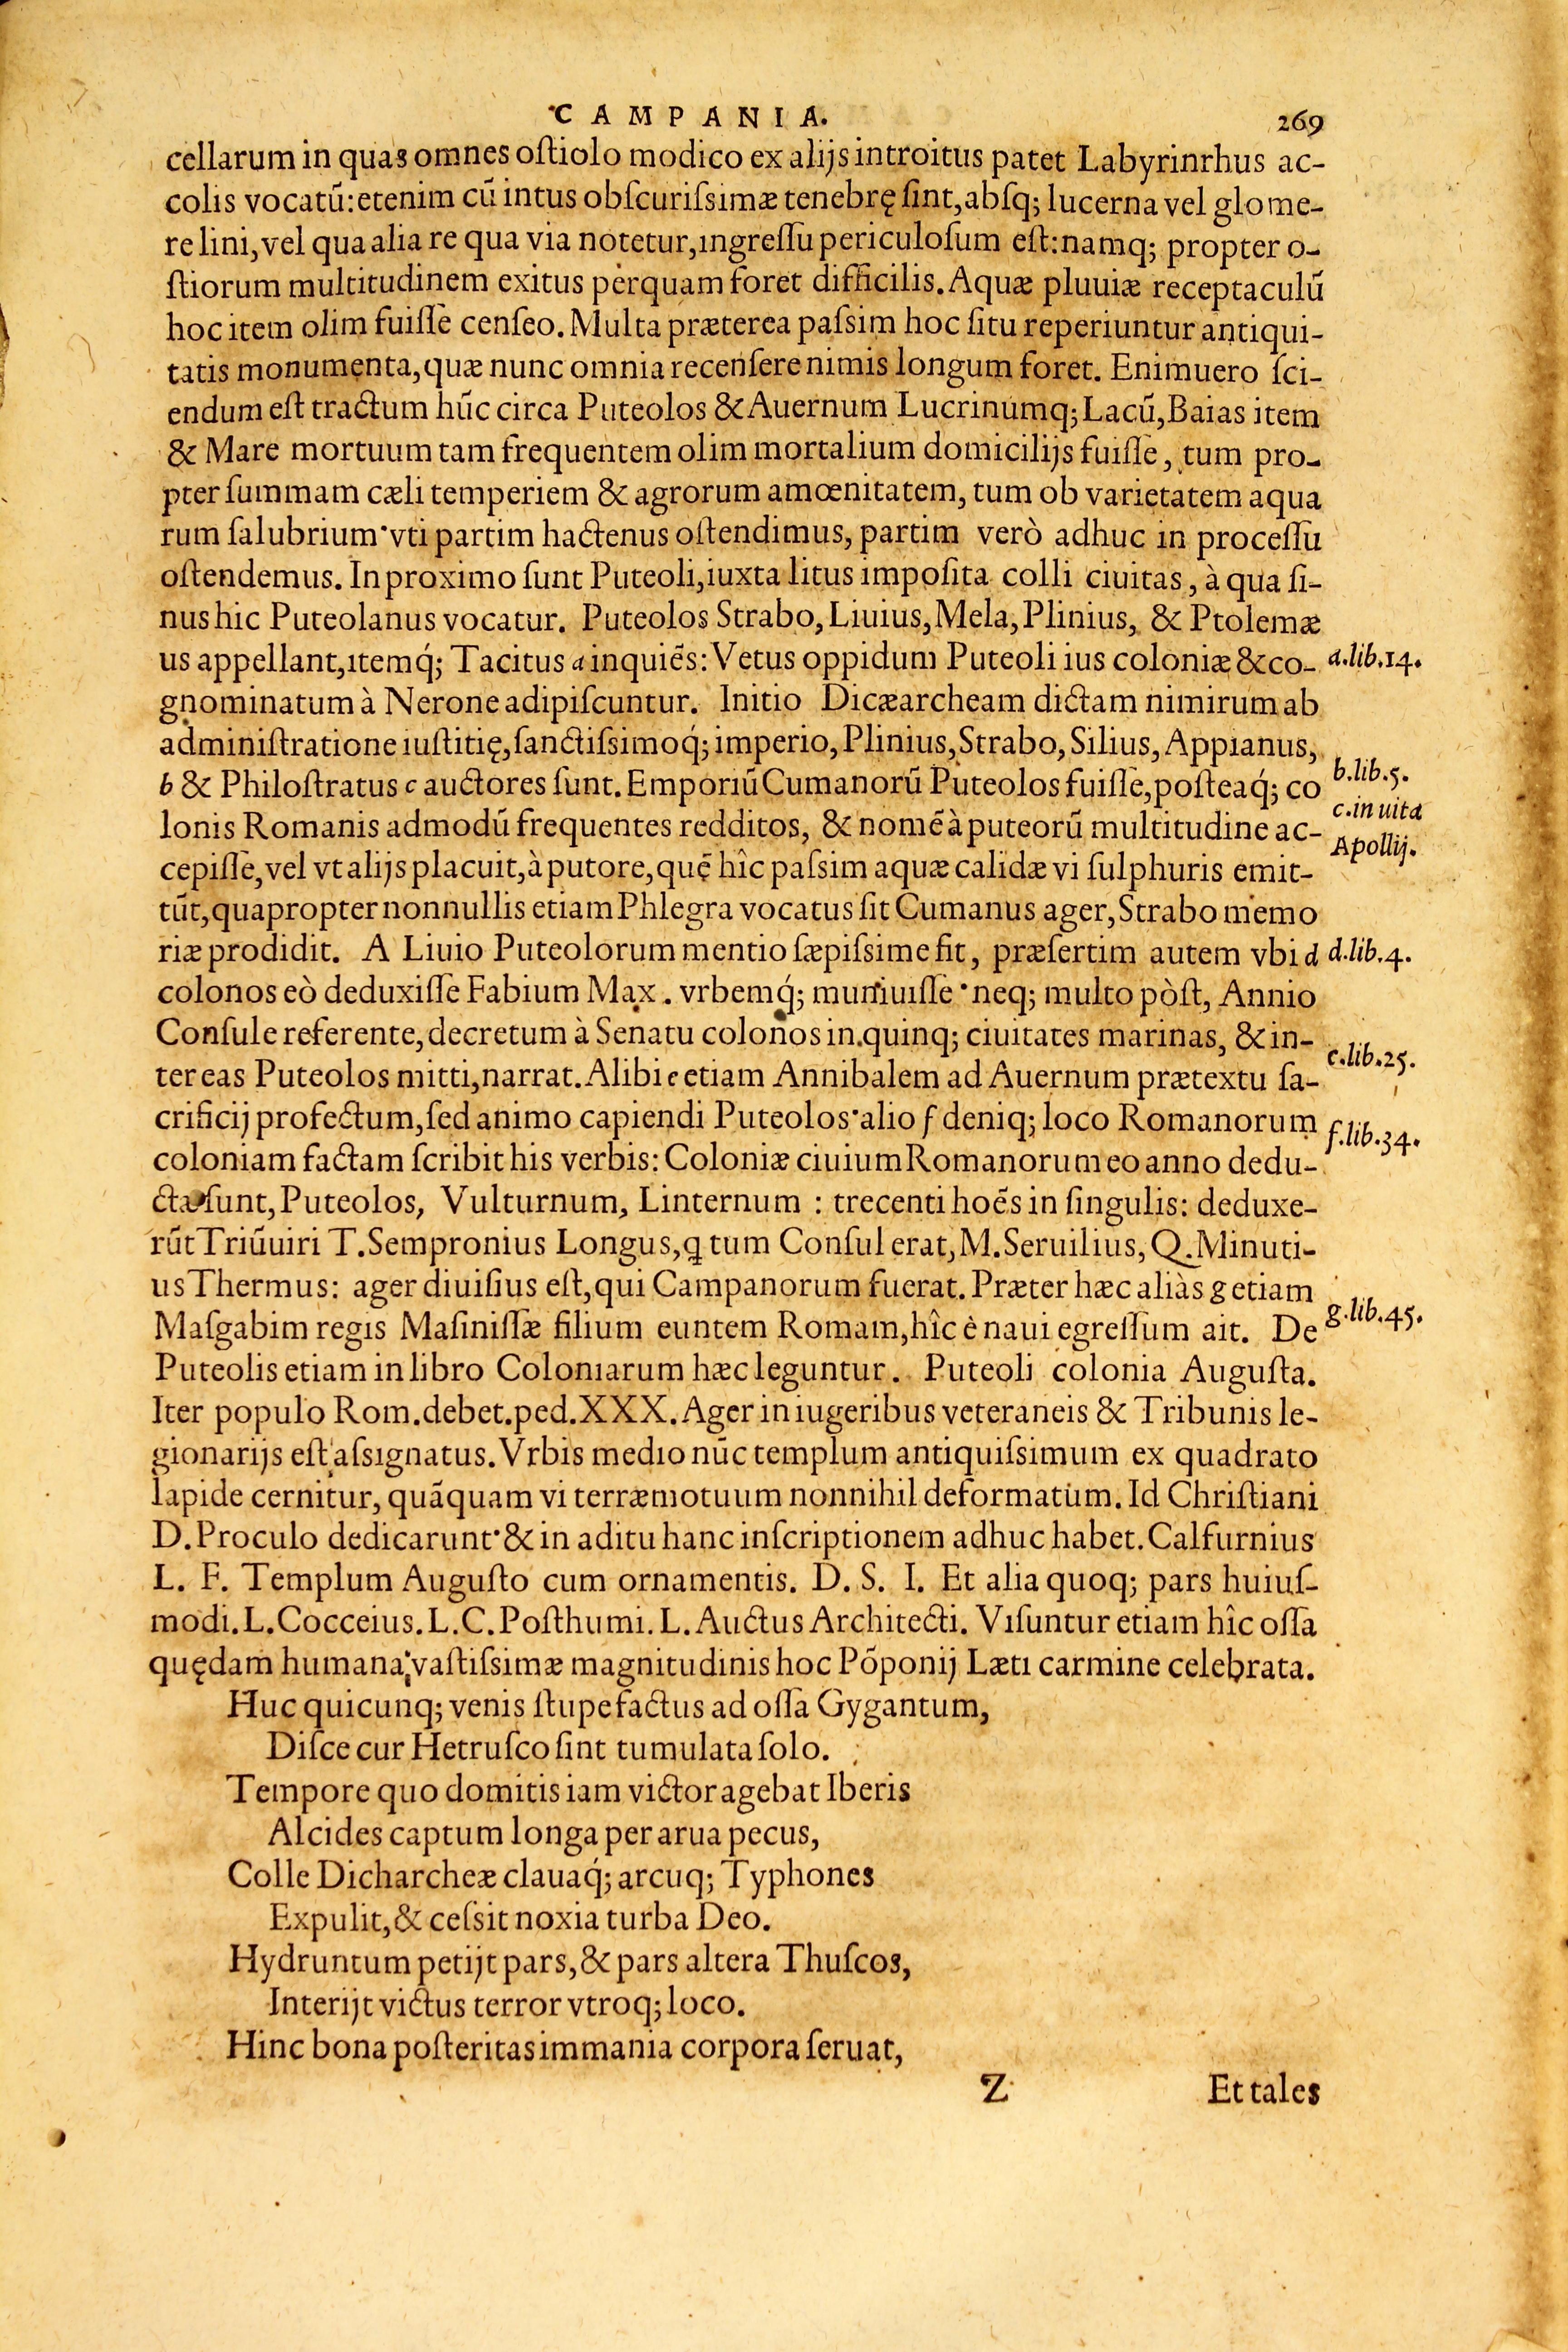 CAMPANIA. 269
cellarum in quas omnes oſtiolo modico ex alijs introitus patet Labyrinrhus ac-
colis vocatū: etenim cū intus obſcuriſsimæ tenebrę ſint, abſq; lucerna vel glome-
re lini, vel qua alia re qua via notetur, ingreſſu periculoſum eſt: namq; propter o-
ſtiorum multitudinem exitus perquam foret difficilis. Aquæ pluuiæ receptaculū
hoc item olim fuiſſe cenſeo. Multa præterea paſsim hoc ſitu reperiuntur antiqui-
tatis monumenta, quæ nunc omnia recenſere nimis longum foret. Enimuero ſci-
endum eſt tractum hūc circa Puteolos & Auernum Lucrinumq; Lacū, Baias item
& Mare mortuum tam frequentem olim mortalium domicilijs fuiſſe, tum pro-
pter ſummam cæli temperiem & agrorum amœnitatem, tum ob varietatem aqua
rum ſalubrium· vti partim hactenus oſtendimus, partim verò adhuc in proceſſu
oſtendemus. In proximo ſunt Puteoli, iuxta litus impoſita colli ciuitas, à qua ſi-
nus hic Puteolanus vocatur. Puteolos Strabo, Liuius, Mela, Plinius, & Ptolemæ
us appellant, itemq́; Tacitus a inquiēs: Vetus oppidum Puteoli ius coloniæ & co- a.lib.14.
gnominatum à Nerone adipiſcuntur. Initio Dicæarcheam dictam nimirum ab
adminiſtratione iuſtitię, ſanctiſsimoq́; imperio, Plinius, Strabo, Silius, Appianus,
b & Philoſtratus c auctores ſunt. Emporiū Cumanorū Puteolos fuiſſe, poſteaq́; co b.lib.5.
lonis Romanis admodū frequentes redditos, & nomē à puteorū multitudine ac- c.in uita
cepiſſe, vel vt alijs placuit, à putore, quę̄ hîc paſsim aquæ calidæ vi ſulphuris emit- Apollij.
tūt, quapropter nonnullis etiam Phlegra vocatus ſit Cumanus ager, Strabo memo
riæ prodidit. A Liuio Puteolorum mentio ſæpiſsime fit, præſertim autem vbi d d.lib.4.
colonos eò deduxiſſe Fabium Max. vrbemq́; muniuiſſe· neq; multo pòſt, Annio
Conſule referente, decretum à Senatu colonos in quinq; ciuitates marinas, & in-
ter eas Puteolos mitti, narrat. Alibi e etiam Annibalem ad Auernum prætextu ſa- e.lib.25.
crificij profectum, ſed animo capiendi Puteolos· alio f deniq; loco Romanorum
coloniam factam ſcribit his verbis: Coloniæ ciuium Romanorum eo anno dedu- f.lib.34.
ctæ ſunt, Puteolos, Vulturnum, Linternum : trecenti hoēs in ſingulis: deduxe-
rūt Triūuiri T. Sempronius Longus, q tum Conſul erat, M. Seruilius, Q. Minuti-
us Thermus: ager diuiſius eſt, qui Campanorum fuerat. Præter hæc aliàs g etiam
Maſgabim regis Maſiniſſæ filium euntem Romam, hîc è naui egreſſum ait. De g.lib.45.
Puteolis etiam in libro Coloniarum hæc leguntur. Puteoli colonia Auguſta.
Iter populo Rom. debet. ped. XXX. Ager in iugeribus veteraneis & Tribunis le-
gionarijs eſt aſsignatus. Vrbis medio nūc templum antiquiſsimum ex quadrato
lapide cernitur, quāquam vi terræmotuum nonnihil deformatum. Id Chriſtiani
D. Proculo dedicarunt· & in aditu hanc inſcriptionem adhuc habet. Calfurnius
L. F. Templum Auguſto cum ornamentis. D. S. I. Et alia quoq; pars huiuſ-
modi. L. Cocceius. L. C. Poſthumi. L. Auctus Architecti. Viſuntur etiam hîc oſſa
quędam humana vaſtiſsimæ magnitudinis hoc Pōponij Læti carmine celebrata.
Huc quicunq; venis ſtupefactus ad oſſa Gygantum,
Diſce cur Hetruſco ſint tumulata ſolo.
Tempore quo domitis iam victor agebat Iberis
Alcides captum longa per arua pecus,
Colle Dicharcheæ clauaq́; arcuq; Typhones
Expulit, & ceſsit noxia turba Deo.
Hydruntum petijt pars, & pars altera Thuſcos,
Interijt victus terror vtroq; loco.
Hinc bona poſteritas immania corpora ſeruat,
Z Et tales